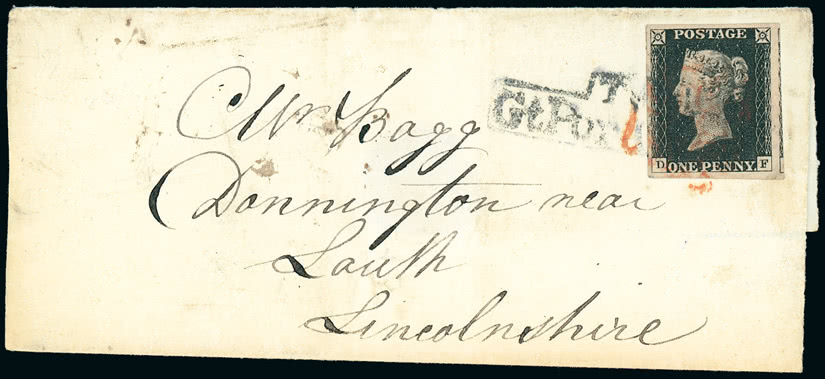 POSTAGE
D ONE PENNY F
T.P
Gt.Por
Mr Bagg
Donnington near
Louth
Lincolnshire